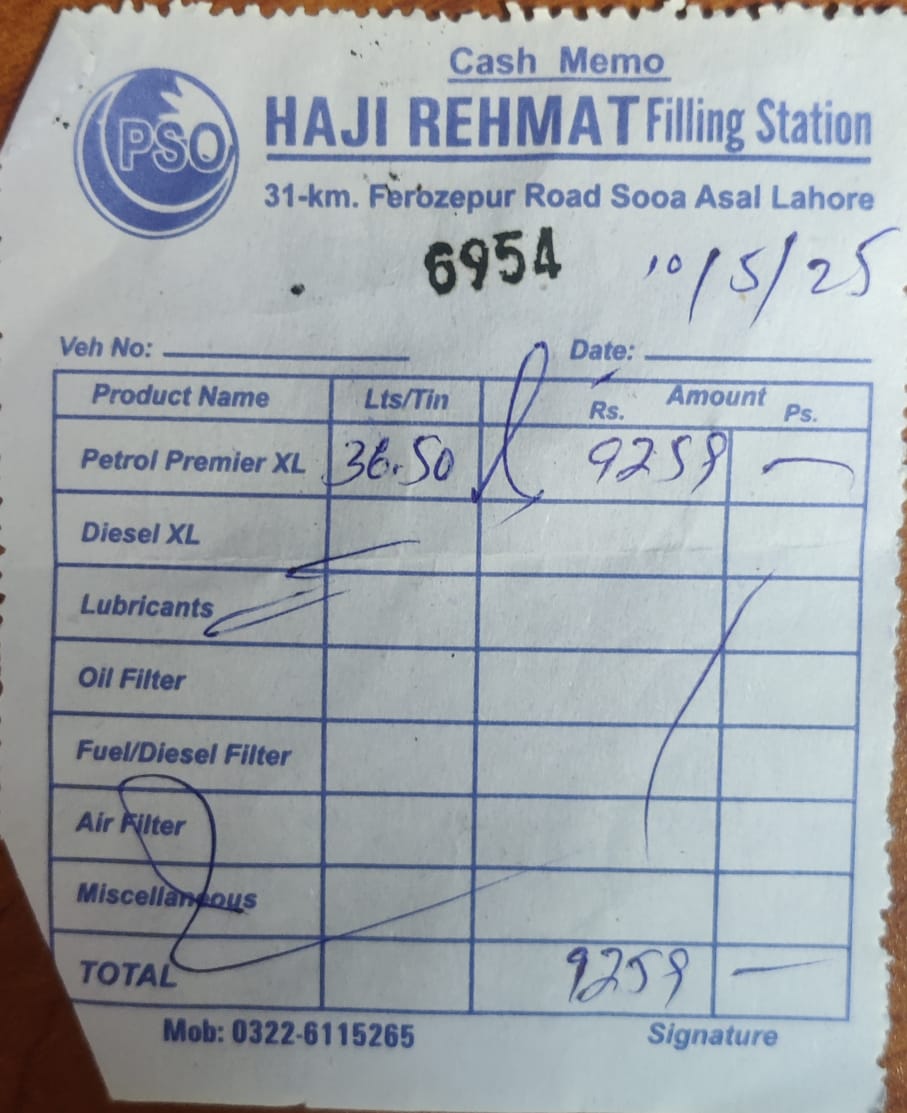 Cash Memo
PSO
HAJI REHMAT Filling Station
31-km. Ferozepur Road Sooa Asal Lahore
6954 10/5/25
Veh No: Date:
Product Name Lts/Tin Rs. Amount Ps.
Petrol Premier XL 36.50 9259 —
Diesel XL
Lubricants
Oil Filter
Fuel/Diesel Filter
Air Filter
Miscellaneous
TOTAL 9259 —
Mob: 0322-6115265 Signature